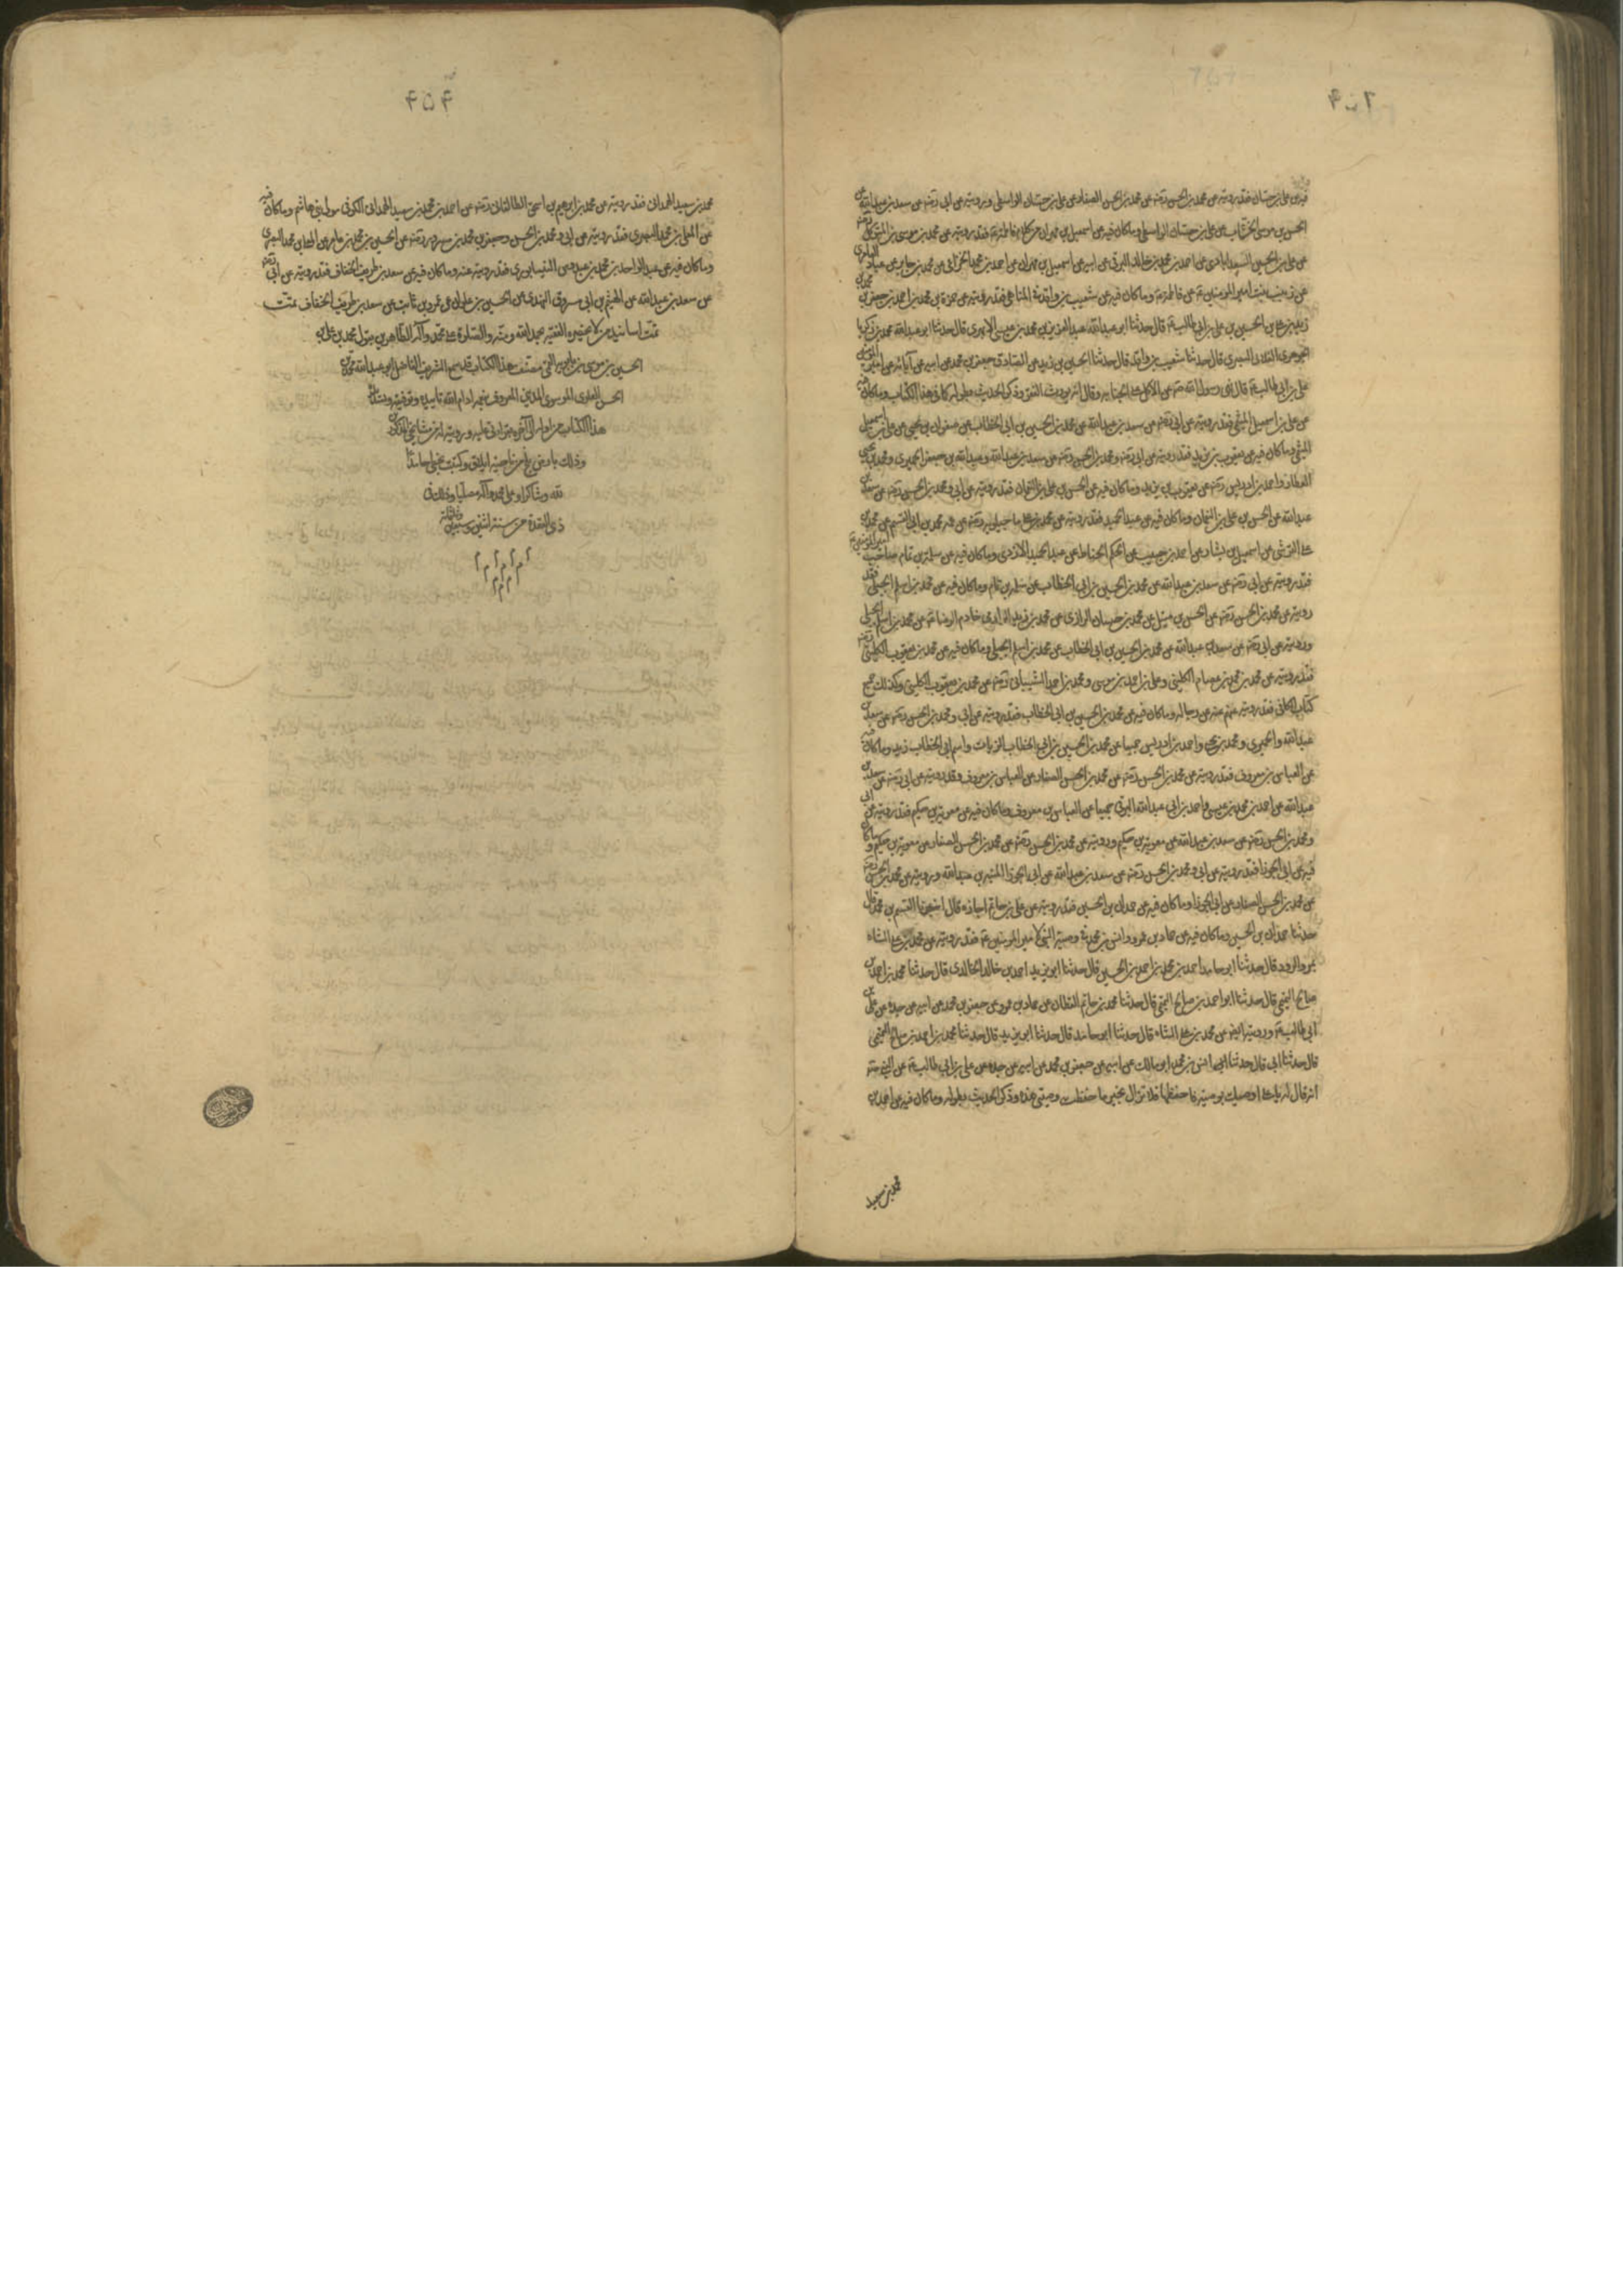 فيه عن علي بن حسان فقد رويته عن محمد بن الحسن رضه عن محمد بن الحسن الصفار عن علي بن حسان الواسطي ورويته عن ابي رضه عن سعد بن عبد الله عن
الحسن بن موسى الخشاب عن علي بن حسان الواسطي وماكان فيه عن اسمعيل بن مهران من كلام فاطمة ع فقد رويته عن محمد بن موسى بن المتوكل رضه
عن علي بن الحسين السعدابادي عن احمد بن محمد بن خالد البرقي عن ابيه عن اسمعيل بن مهران عن احمد بن محمد الخزاعي عن محمد بن جابر عن عباد العامري
عن زينب بنت امير المومنين ع عن فاطمة ع وماكان فيه عن شعيب بن واقد في المناهي فقد رويته عن حمزة بن محمد بن احمد بن جعفر بن محمد بن
زيد بن علي بن الحسين بن علي بن ابي طالب ع قال حدثنا ابو عبد الله عبد العزيز بن محمد بن عيسى الابهري قال حدثنا ابو عبد الله محمد بن زكريا
الجوهري الغلابي البصري قال حدثنا شعيب بن واقد قال حدثنا الحسين بن زيد عن الصادق جعفر بن محمد عن ابيه عن آبائه عن امير المومنين
علي بن ابي طالب ع قال نهى رسول الله ص عن الاكل على الجنابه وقال انه يورث الفقر وذكر الحديث بطوله كما في هذا الكتاب وماكان فيه
عن علي بن اسمعيل الميثمي فقد رويته عن ابي رضه عن سعد بن عبد الله عن محمد بن الحسين بن ابي الخطاب عن صفوان بن يحيى عن علي بن اسمعيل
الميثمي وماكان فيه عن يعقوب بن يزيد فقد رويته عن ابي رضه ومحمد بن الحسن رضه عن سعد بن عبد الله وعبد الله بن جعفر الحميري ومحمد بن يحيى
العطار واحمد بن ادريس رضه عن يعقوب بن يزيد وماكان فيه عن الحسن بن علي بن النعمان فقد رويته عن ابي ومحمد بن الحسن رضه عن سعد بن
عبد الله عن الحسن بن علي بن النعمان وماكان فيه عن عبد الحميد فقد رويته عن محمد بن علي ماجيلويه رضه عن عمه محمد بن ابي القسم عن محمد بن
علي القرشي عن اسمعيل بن بشار عن احمد بن حبيب عن الحكم الخياط عن عبد الحميد الازدي وماكان فيه عن سلمة بن تمام صاحب امير المومنين ع
فقد رويته عن ابي رضه عن سعد بن عبد الله عن محمد بن الحسين بن ابي الخطاب عن سلمة بن تمام وماكان فيه عن محمد بن اسلم الجبلي فقد
رويته عن محمد بن الحسن رضه عن الحسن بن متيل عن محمد بن حسان الرازي عن محمد بن زيد الرزامي خادم الرضا ع عن محمد بن اسلم الجبلي
ورويته عن ابي رضه عن سعد بن عبد الله عن محمد بن الحسين بن ابي الخطاب عن محمد بن اسلم الجبلي وماكان فيه عن محمد بن يعقوب الكليني رضه
فقد رويته عن محمد بن محمد بن عصام الكليني وعلي بن احمد بن موسى ومحمد بن احمد الشيباني رضه عن محمد بن يعقوب الكليني وكذلك جميع
كتاب الكافي فقد رويته عنهم عنه عن رجاله وماكان فيه عن محمد بن الحسين بن ابي الخطاب فقد رويته عن ابي ومحمد بن الحسن رضه عن سعد بن
عبد الله والحميري ومحمد بن يحيى واحمد بن ادريس جميعا عن محمد بن الحسين بن ابي الخطاب الزيات واسم ابي الخطاب زيد وماكان فيه
عن العباس بن معروف فقد رويته عن محمد بن الحسن رضه عن محمد بن الحسن الصفار عن العباس بن معروف وقد رويته عن ابي رضه عن سعد بن
عبد الله عن احمد بن محمد بن عيسى واحمد بن ابي عبد الله البرقي جميعا عن العباس بن معروف وماكان فيه عن معوية بن حكيم فقد رويته عن ابي
ومحمد بن الحسن رضه عن سعد بن عبد الله عن معوية بن حكيم ورويته عن محمد بن الحسن رضه عن محمد بن الحسن الصفار عن معوية بن حكيم وماكان
فيه عن ابي الجوزا فقد رويته عن ابي ومحمد بن الحسن رضه عن سعد بن عبد الله عن ابي الجوزا المنبه بن عبد الله ورويته عن محمد بن الحسن رضه
عن محمد بن الحسن الصفار عن ابي الجوزا وماكان فيه عن حمدان بن الحسين فقد رويته عن علي بن حاتم اجازه قال اخبرنا القسم بن محمد قال
حدثنا حمدان بن الحسين وماكان فيه عن حماد بن عمرو وانس بن محمد في وصية النبي لامير المومنين ع فقد رويته عن محمد بن علي الشاه
بمرو الرود قال حدثنا ابو حامد احمد بن محمد بن احمد بن الحسين قال حدثنا ابو يزيد احمد بن خالد الخالدي قال حدثنا محمد بن احمد بن
صالح التميمي قال حدثنا ابو احمد بن صالح التميمي قال حدثنا محمد بن حاتم القطان عن حماد بن عمرو عن جعفر بن محمد عن ابيه عن جده عن علي بن
ابي طالب ع ورويته ايضا عن محمد بن علي الشاه قال حدثنا ابو حامد قال حدثنا ابو يزيد قال حدثنا محمد بن احمد بن صالح التميمي
قال حدثنا ابي قال حدثنا ابي انس بن محمد ابو مالك عن ابيه عن جعفر بن محمد عن ابيه عن جده عن علي بن ابي طالب ع عن النبي ص
انه قال له يا علي اوصيك بوصية فاحفظها فلا تزال بخير ما حفظت وصيتي هذه وذكر الحديث بطوله وماكان فيه عن احمد بن
محمد بن سعيد
۴۵۴
محمد بن سعيد الهمداني فقد رويته عن محمد بن ابرهيم بن اسحق الطالقاني رضه عن احمد بن محمد بن سعيد الهمداني الكوفي مولى بني هاشم وماكان فيه
عن المعلى بن محمد البصري فقد رويته عن ابي ومحمد بن الحسن وجعفر بن محمد بن مسرور رضه عن الحسين بن محمد بن عامر عن المعلى بن محمد البصري
وماكان فيه عن عبد الواحد بن محمد بن عبدوس النيسابوري فقد رويته عنه وماكان فيه عن سعد بن طريف الخفاف فقد رويته عن ابي رضه
عن سعد بن عبد الله عن الهيثم بن ابي مسروق النهدي عن الحسين بن علوان عن عمرو بن ثابت عن سعد بن طريف الخفاف تمت
تمت اسانيد من لا يحضره الفقيه بحمد الله ومنه والصلوة على محمد وآله الطاهرين يقول محمد بن علي بن
الحسين بن موسى بن بابويه القمي مصنف هذا الكتاب قد سمع الشريف الفاضل ابو عبد الله محمد بن
الحسن العلوي الموسوي المديني المعروف بنعمه ادام الله تاييده وتوفيقه وتسديده
هذا الكتاب من اوله الى آخره بقراءتي عليه ورويته عن مشايخي المذكورين
وذلك بارض بلخ من ناحية ايلاق وكتبت بخطي حامدا
لله وشاكرا وعلى محمد وآله مصليا وذلك في
ذي القعدة من سنة اثنين وسبعين وثلثمائة
م م م م م م م